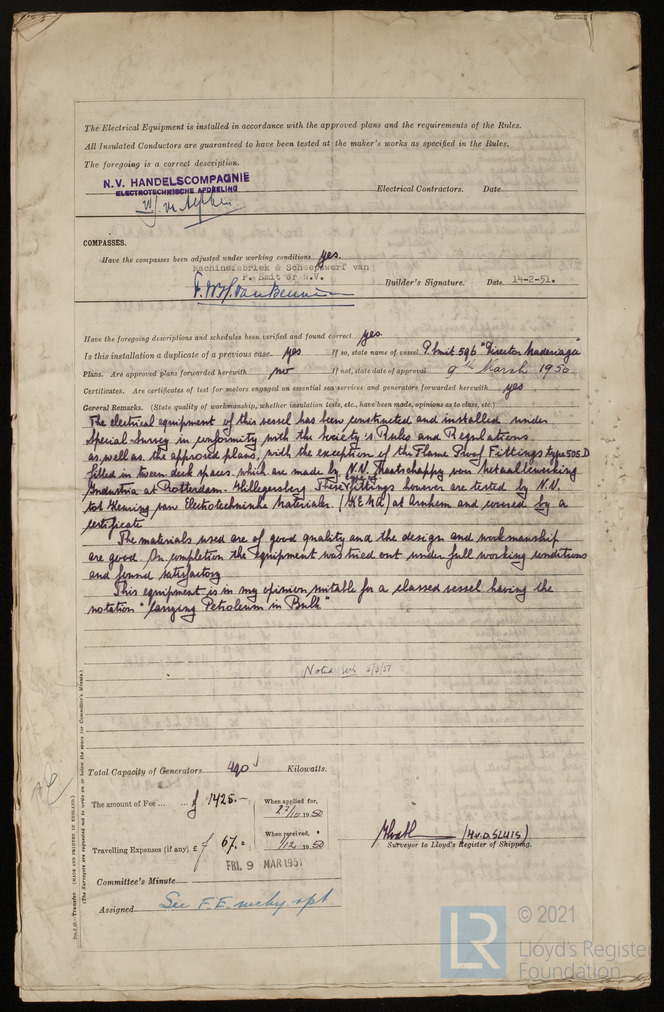 The Electrical Equipment is installed in accordance with the approved plans and the requirements of the Rules.
All Insulated Conductors are guaranteed to have been tested at the maker's works as specified in the Rules.
The foregoing is a correct description.
N.V. HANDELSCOMPAGNIE
ELECTROTECHNISCHE AFDEELING
Electrical Contractors. Date
COMPASSES.
Have the compasses been adjusted under working conditions yes.
Machinefabriek & Scheepswerf van
P. Smit Jr N.V.
Builder's Signature. Date 14-2-51.
Have the foregoing descriptions and schedules been verified and found correct yes
Is this installation a duplicate of a previous case yes If so, state name of vessel P. Smit 596 "Director Madariaga"
Plans. Are approved plans forwarded herewith no If not, state date of approval 9th March 1950
Certificates. Are certificates of test for motors engaged on essential sea services and generators forwarded herewith yes
General Remarks. (State quality of workmanship, whether insulation tests, etc., have been made, opinions as to class, etc.)
The electrical equipment of this vessel has been constructed and installed under
Special Survey in conformity with the Society's Rules and Regulations
as well as the approved plans, with the exception of the Flame Proof Fittings type 505 D
fitted in tween deck spaces which are made by N.V. Maatschappy von Metaalbewerking
Industria at Rotterdam - Hillegersberg. These fittings however are tested by N.V.
tot Keuring van Electrotechnische Materialen (KEMA) at Arnhem and covered by a
certificate
The materials used are of good quality and the design and workmanship
are good. On completion the equipment was tried out under full working conditions
and found satisfactory
This equipment is in my opinion suitable for a classed vessel having the
notation "Carrying Petroleum in Bulk"
Noted 5/3/51
Total Capacity of Generators 490 Kilowatts.
The amount of Fee ... ... f 1425.-
When applied for,
27/10 1950
Travelling Expenses (if any) £ f 67.=
When received,
1/12 1950
(H.v.D.SLUIS)
Surveyor to Lloyd's Register of Shipping.
FRI. 9 MAR 1951
Committee's Minute
Assigned See F.E. mchy rpt
Transfer. (MADE AND PRINTED IN ENGLAND.)
(The Surveyors are requested not to write on or below the space for Committee's Minute.)
LR
© 2021
Lloyd's Register
Foundation